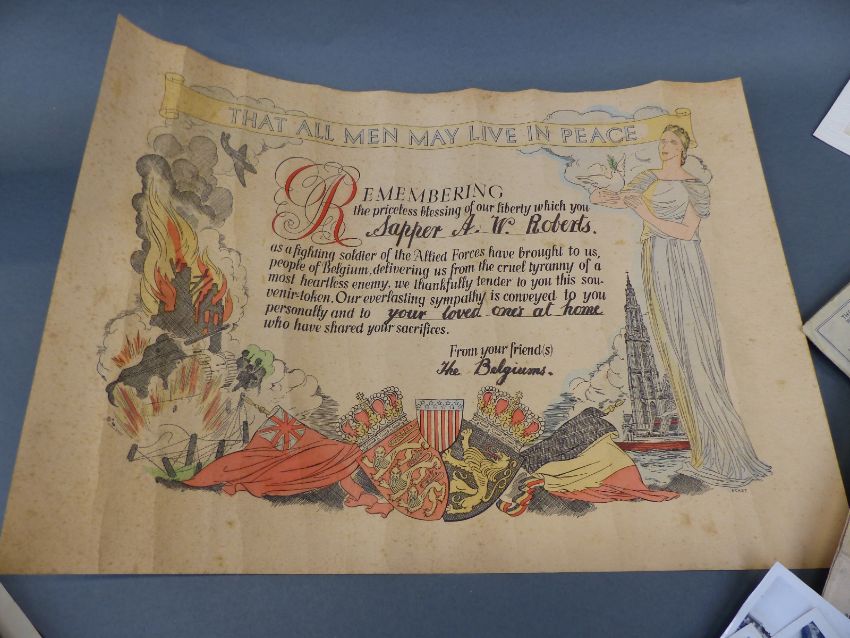 THAT ALL MEN MAY LIVE IN PEACE
REMEMBERING
the priceless blessing of our liberty which you
Sapper A. W. Roberts.
as a fighting soldier of the Allied Forces have brought to us,
people of Belgium, delivering us from the cruel tyranny of a
most heartless enemy, we thankfully tender to you this sou-
venir-token. Our everlasting sympathy is conveyed to you
personally and to your loved one's at home
who have shared your sacrifices.
From your friend(s)
The Belgiums.